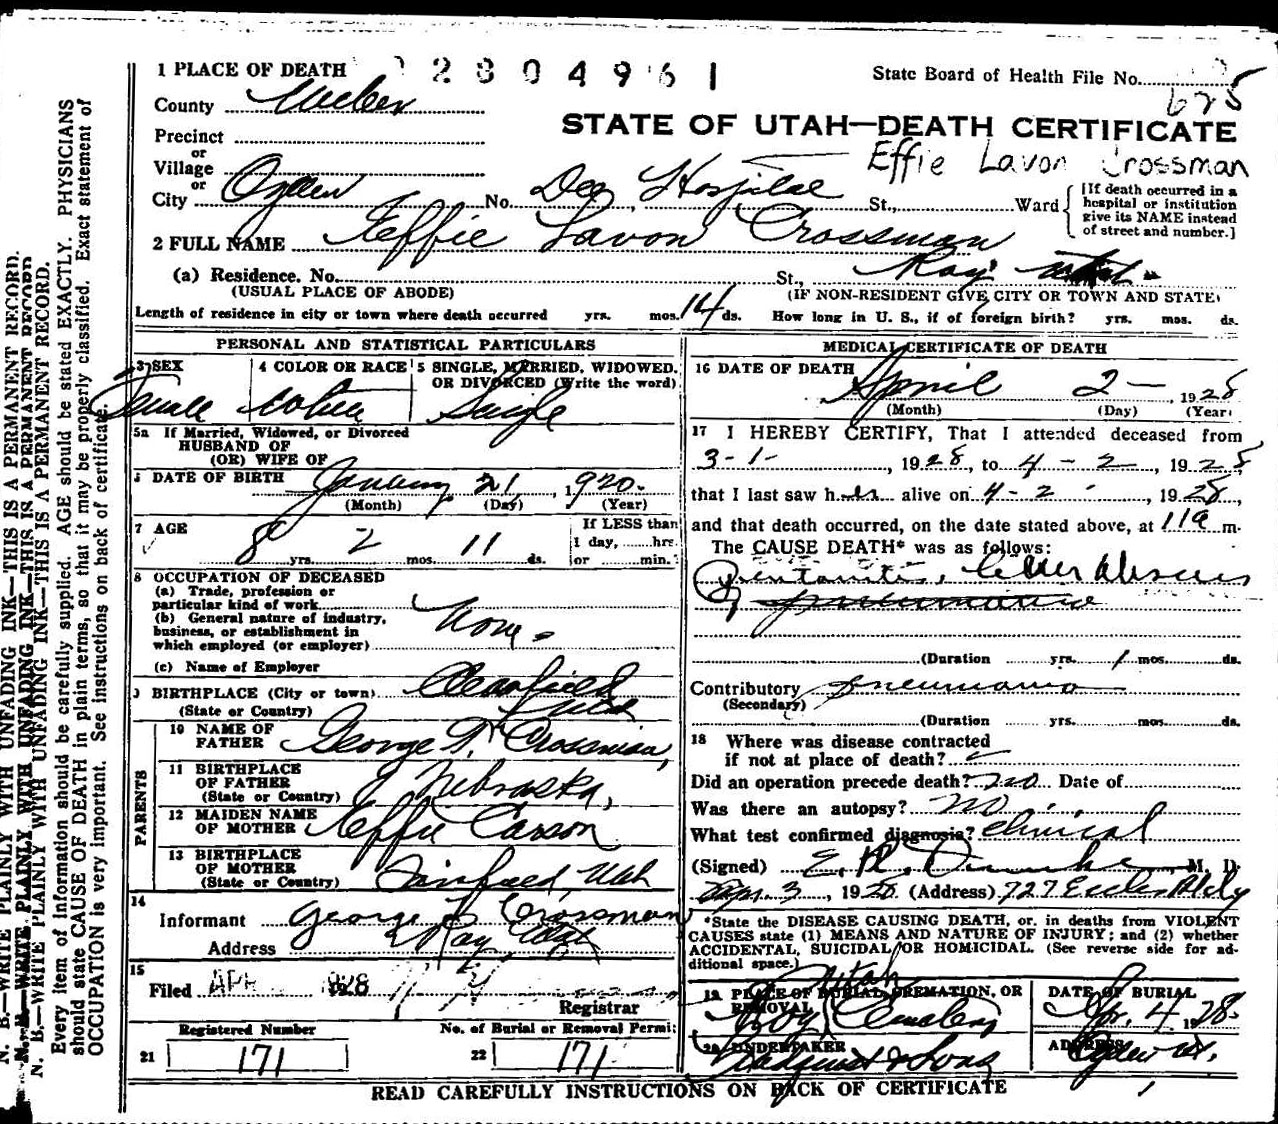 1 PLACE OF DEATH 2804961 State Board of Health File No.
625
County Weber
STATE OF UTAH—DEATH CERTIFICATE
Precinct
Effie Lavon Crossman
or
Village
or
City Ogden No. Dee Hospital St., Ward
[If death occurred in a
hospital or institution
give its NAME instead
of street and number.]
2 FULL NAME Effie Lavon Crossman
(a) Residence. No. St., Roy
(USUAL PLACE OF ABODE) (IF NON-RESIDENT GIVE CITY OR TOWN AND STATE)
Length of residence in city or town where death occurred yrs. mos. 14 ds. How long in U. S., if of foreign birth? yrs. mos. ds.
PERSONAL AND STATISTICAL PARTICULARS
3 SEX
Female
4 COLOR OR RACE
White
5 SINGLE, MARRIED, WIDOWED,
OR DIVORCED (Write the word)
Single
5a If Married, Widowed, or Divorced
HUSBAND OF
(OR) WIFE OF
DATE OF BIRTH January 21, 1920.
(Month) (Day) (Year)
7 AGE
8 yrs. 2 mos. 11 ds.
If LESS than
1 day, hrs.
or min.
8 OCCUPATION OF DECEASED
(a) Trade, profession or
particular kind of work
None
(b) General nature of industry,
business, or establishment in
which employed (or employer)
(c) Name of Employer
BIRTHPLACE (City or town) Clearfield
(State or Country) Utah
PARENTS
10 NAME OF
FATHER George T. Crossman,
11 BIRTHPLACE
OF FATHER
(State or Country) Nebraska,
12 MAIDEN NAME
OF MOTHER Effie Carson
13 BIRTHPLACE
OF MOTHER
(State or Country) Fairfield, Utah
14
Informant George T Crossman
Address Roy, Utah
15
Filed APR 1928
Registrar
Registered Number No. of Burial or Removal Permit
21 171 22 171
MEDICAL CERTIFICATE OF DEATH
16 DATE OF DEATH
April 2 — , 1928
(Month) (Day) (Year)
17 I HEREBY CERTIFY, That I attended deceased from
3-1- , 1928, to 4-2 , 1928
that I last saw her alive on 4-2 , 1928,
and that death occurred, on the date stated above, at 11 a m.
The CAUSE DEATH* was as follows:
Peritonitis, Liver Abscess
(Duration yrs. 1 mos. ds.
Contributory pneumonia
(Secondary)
(Duration yrs. mos. ds.
18 Where was disease contracted
if not at place of death?
Did an operation precede death? no Date of
Was there an autopsy? no
What test confirmed diagnosis? Clinical
(Signed) E. R. M. D.
Apr. 3, 1928 (Address) 727 Eccles Bldg
*State the DISEASE CAUSING DEATH, or, in deaths from VIOLENT
CAUSES state (1) MEANS AND NATURE OF INJURY; and (2) whether
ACCIDENTAL, SUICIDAL OR HOMICIDAL. (See reverse side for ad-
ditional space.)
Utah
19 PLACE OF BURIAL, CREMATION, OR
REMOVAL
Roy Cemetery
DATE OF BURIAL
Apr. 4 1928.
20 UNDERTAKER
Lindquist & Sons
ADDRESS
Ogden Ut.
READ CAREFULLY INSTRUCTIONS ON BACK OF CERTIFICATE
N. B.—WRITE PLAINLY WITH UNFADING INK—THIS IS A PERMANENT RECORD.
Every item of information should be carefully supplied. AGE should be stated EXACTLY. PHYSICIANS
should state CAUSE OF DEATH in plain terms, so that it may be properly classified. Exact statement of
OCCUPATION is very important. See instructions on back of certificate.